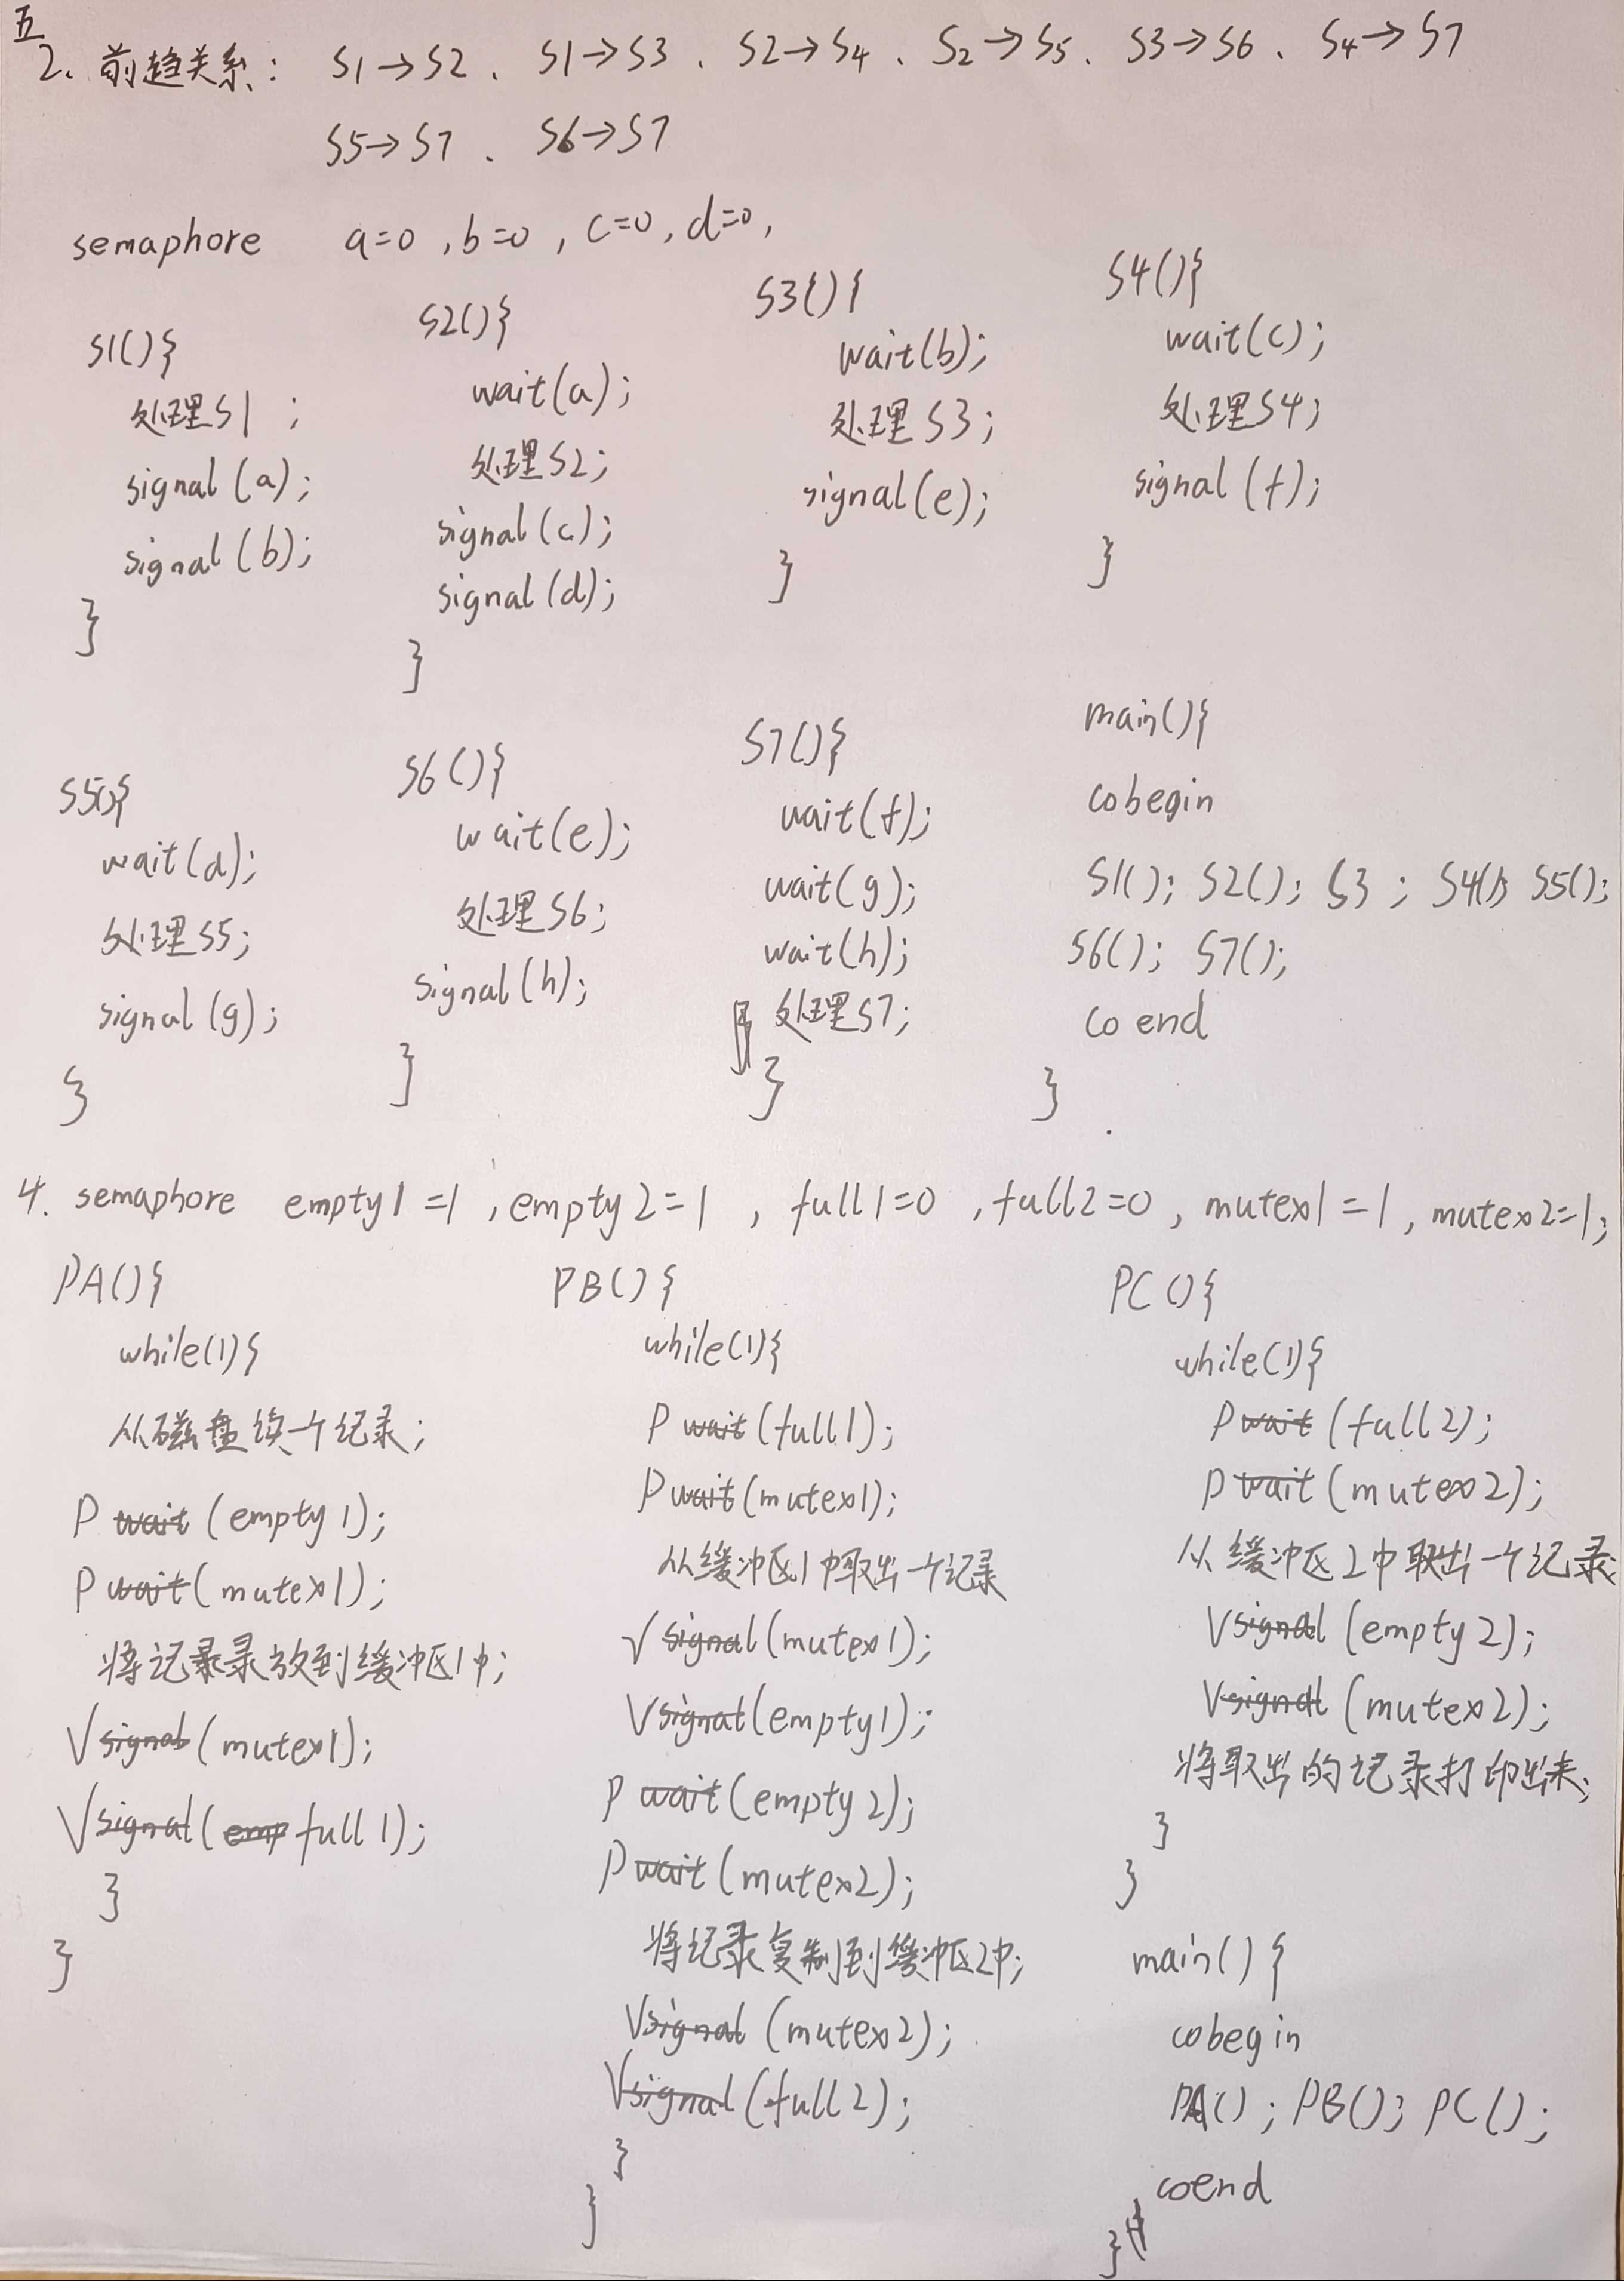 五
2、前趋关系： S1→S2 、 S1→S3 、 S2→S4 、 S2→S5 、 S3→S6 、 S4→S7
S5→S7 、 S6→S7
semaphore a=0 ,b=0 , c=0, d=0,
S1(){
处理S1 ;
signal (a);
signal (b);
}
S2(){
wait(a);
处理S2;
signal(c);
signal(d);
}
S3(){
wait(b);
处理S3;
signal(e);
}
S4(){
wait(c);
处理S4;
signal(f);
}
S5(){
wait(d);
处理S5;
signal(g);
}
S6(){
wait(e);
处理S6;
signal(h);
}
S7(){
wait(f);
wait(g);
wait(h);
处理S7;
}
main(){
cobegin
S1(); S2(); S3 ; S4(); S5();
S6(); S7();
co end
}
4. semaphore empty1=1 , empty2=1 , full1=0 , full2=0 , mutex1=1 , mutex2=1;
PA(){
while(1){
从磁盘读一个记录;
P wait (empty1);
P wait (mutex1);
将记录录放到缓冲区1中;
V signal (mutex1);
V signal (emp full1);
}
}
PB(){
while(1){
P wait (full1);
P wait (mutex1);
从缓冲区1中取出一个记录
V signal (mutex1);
V signal (empty1);
P wait (empty2);
P wait (mutex2);
将记录复制到缓冲区2中;
V signal (mutex2);
V signal (full2);
}
}
PC(){
while(1){
P wait (full2);
P wait (mutex2);
从缓冲区2中取出一个记录;
V signal (empty2);
V signal (mutex2);
将取出的记录打印出来;
}
}
main(){
cobegin
PA(); PB(); PC();
coend
}